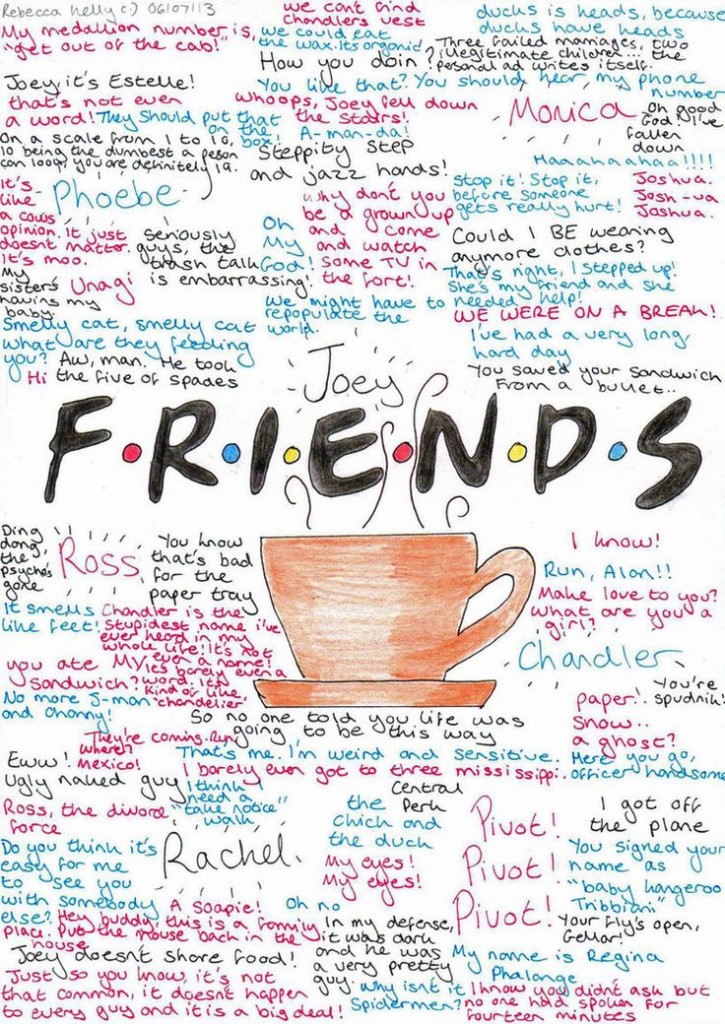 Rebecca Kelly c:) 06107113
My medallion number is,
"get out of the cab!"
we cant find
chandlers vest
we could eat
the wax. Its organic!
ducks is heads, because
ducks have heads
Three failed marriages, two
illegitimate children... the
personal ad writes itself.
How you doin?
Joey it's Estelle!
You like that? You should hear my phone
number
that's not even
a word!
They should put that
on the
box!
whoops, Joey fell down
the stairs!
Monica
Oh good
God! I've
fallen
down
On a scale from 1 to 10,
10 being the dumbest a person
can look, you are definitely 19.
A-man-da!
Steppity step
and jazz hands!
Haaahaahaa!!!!
It's
like
a cows
opinion. it just
doesnt matter.
it's moo.
Phoebe
why don't you
be a grown up
and come
and watch
some TV in
the fort!
Stop it! Stop it,
before someone
gets really hurt!
Joshua.
Josh-ua
Joshua.
seriously
guys, the
trash talk
is embarrassing!
Oh
My
God!
Could I BE wearing
anymore clothes?
My
sisters
having my
baby.
Unagi
That's right, I stepped up!
She's my friend and she
needed help!
we might have to
repopulate the
world.
WE WERE ON A BREAK!
Smelly cat, smelly cat
what are they feeding
you?
I've had a very long,
hard day
Aw, man. He took
the five of spades
Hi
You saved your sandwich
From a bullet..
Joey
F.R.I.E.N.D.S
Ding
dong,
the
psycho's
gone
Ross
You know
that's bad
for the
paper tray
I know!
Run, Alan!!
It smells
like feet!
Chandler is the
stupidest name i've
ever heard in my
whole life! It's not
even a name!
It's barely even a
word. it's
kind of like
chandelier
Make love to you?
What are you a
girl?
Chandler
you ate MY
sandwich?
No more J-man
and channy!
You're
spudnik!
paper..
snow..
a ghost?
So no one told you life was
going to be this way
They're coming. Run!
where?
Mexico!
That's me. I'm weird and sensitive.
Here you go,
officer handsome
Eww!
Ugly naked guy
I barely even got to three mississippi.
I think I
need a
"take notice"
walk
Central
Perk
Ross, the divorce
force
the
chick and
the duck
Pivot!
Pivot!
Pivot!
I got off
the plane
Do you think it's
easy for me
to see you
with somebody
else?
Rachel
My eyes!
My eyes!
You signed your
name as
"baby kangeroo
Tribbiani"
A soapie!
Oh no
Hey buddy, this is a family
place. Put the mouse back in the
house
In my defense,
it was dark
and he was
a very pretty
guy.
Your fly's open,
Gellar!
Joey doesn't share food!
My name is Regina
Phalange
Just so you know, it's not
that common, it doesnt happen
to every guy and it is a big deal!
why isn't it
Spidermen?
I know you didn't ask but
no one had spoken for
fourteen minutes